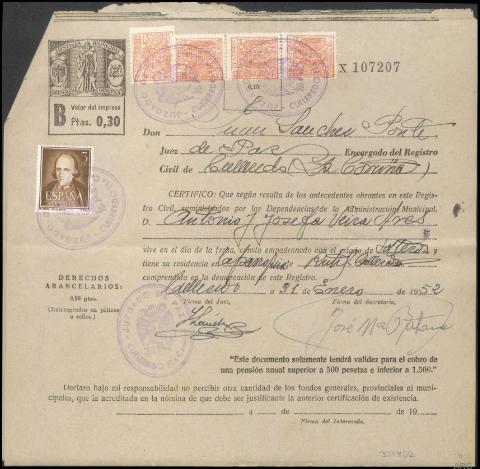 JUSTICIA MUNICIPAL
B Valor del impreso
Ptas. 0,30
X 107207
0,15
5
ESPAÑA
Don Juan Sanchez Ponte
Juez de Paz Encargado del Registro
Civil de Culleredo (La Coruña)
CERTIFICO: Que según resulta de los antecedentes obrantes en este Regis-
tro Civil, suministrados por las Dependencias de la Administración Municipal,
D. Antonia y Josefa Veira Ares
vive en el día de la fecha, consta empadronado con el estado de solteras y
tiene su residencia en
comprendida en la demarcación de este Registro.
Culleredo a 31 de Enero de 1952
Firma del Juez, Firma del Secretario,
DERECHOS
ARANCELARIOS:
(Reintegrados en pólizas
o sellos.)
JUZGADO DE PAZ
CULLEREDO
José Mª
"Este documento solamente tendrá validez para el cobro de
una pensión anual superior a 500 pesetas e inferior a 1.500."
Declaro bajo mi responsabilidad no percibir otra cantidad de los fondos generales, provinciales ni muni-
cipales, que la acreditada en la nómina de que debe ser justificante la anterior certificación de existencia.
a de de 19
Firma del Interesado.